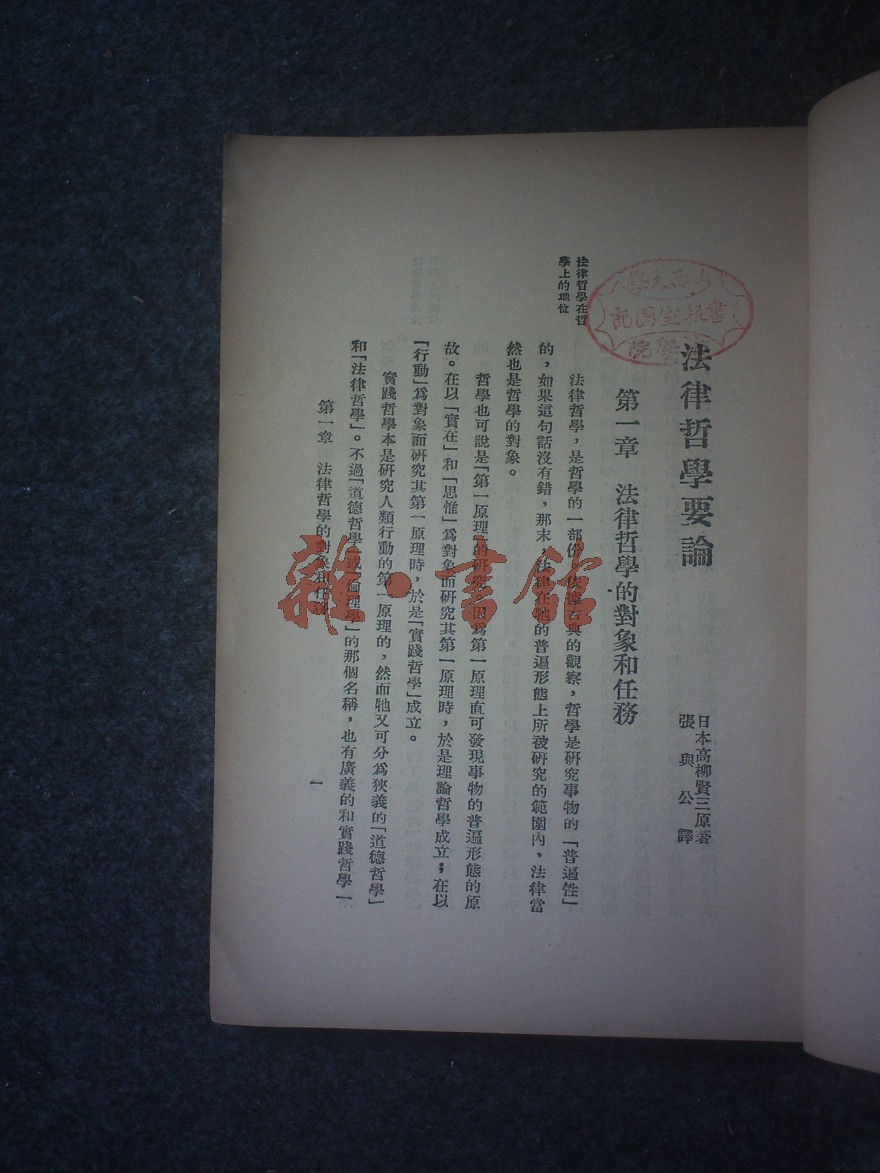 法律哲學要論
日本高柳賢三原著
張與公譯
第一章 法律哲學的對象和任務
法律哲學在哲
學上的地位
法律哲學，是哲學的一部份。依據古典的觀察，哲學是研究事物的「普遍性」
的，如果這句話沒有錯，那末，法律在牠的普遍形態上所被研究的範圍內，法律當
然也是哲學的對象。
哲學也可說是「第一原理」的研究。因爲第一原理直可發現事物的普遍形態的原
故。在以「實在」和「思惟」爲對象而研究其第一原理時，於是理論哲學成立；在以
「行動」爲對象而研究其第一原理時，於是「實踐哲學」成立。
實踐哲學本是研究人類行動的第一原理的，然而牠又可分爲狹義的「道德哲學」
和「法律哲學」。不過「道德哲學」或「倫理學」的那個名稱，也有廣義的和實踐哲學一
第一章 法律哲學的對象和任務
一
書報室圖記
學院
雜·書館